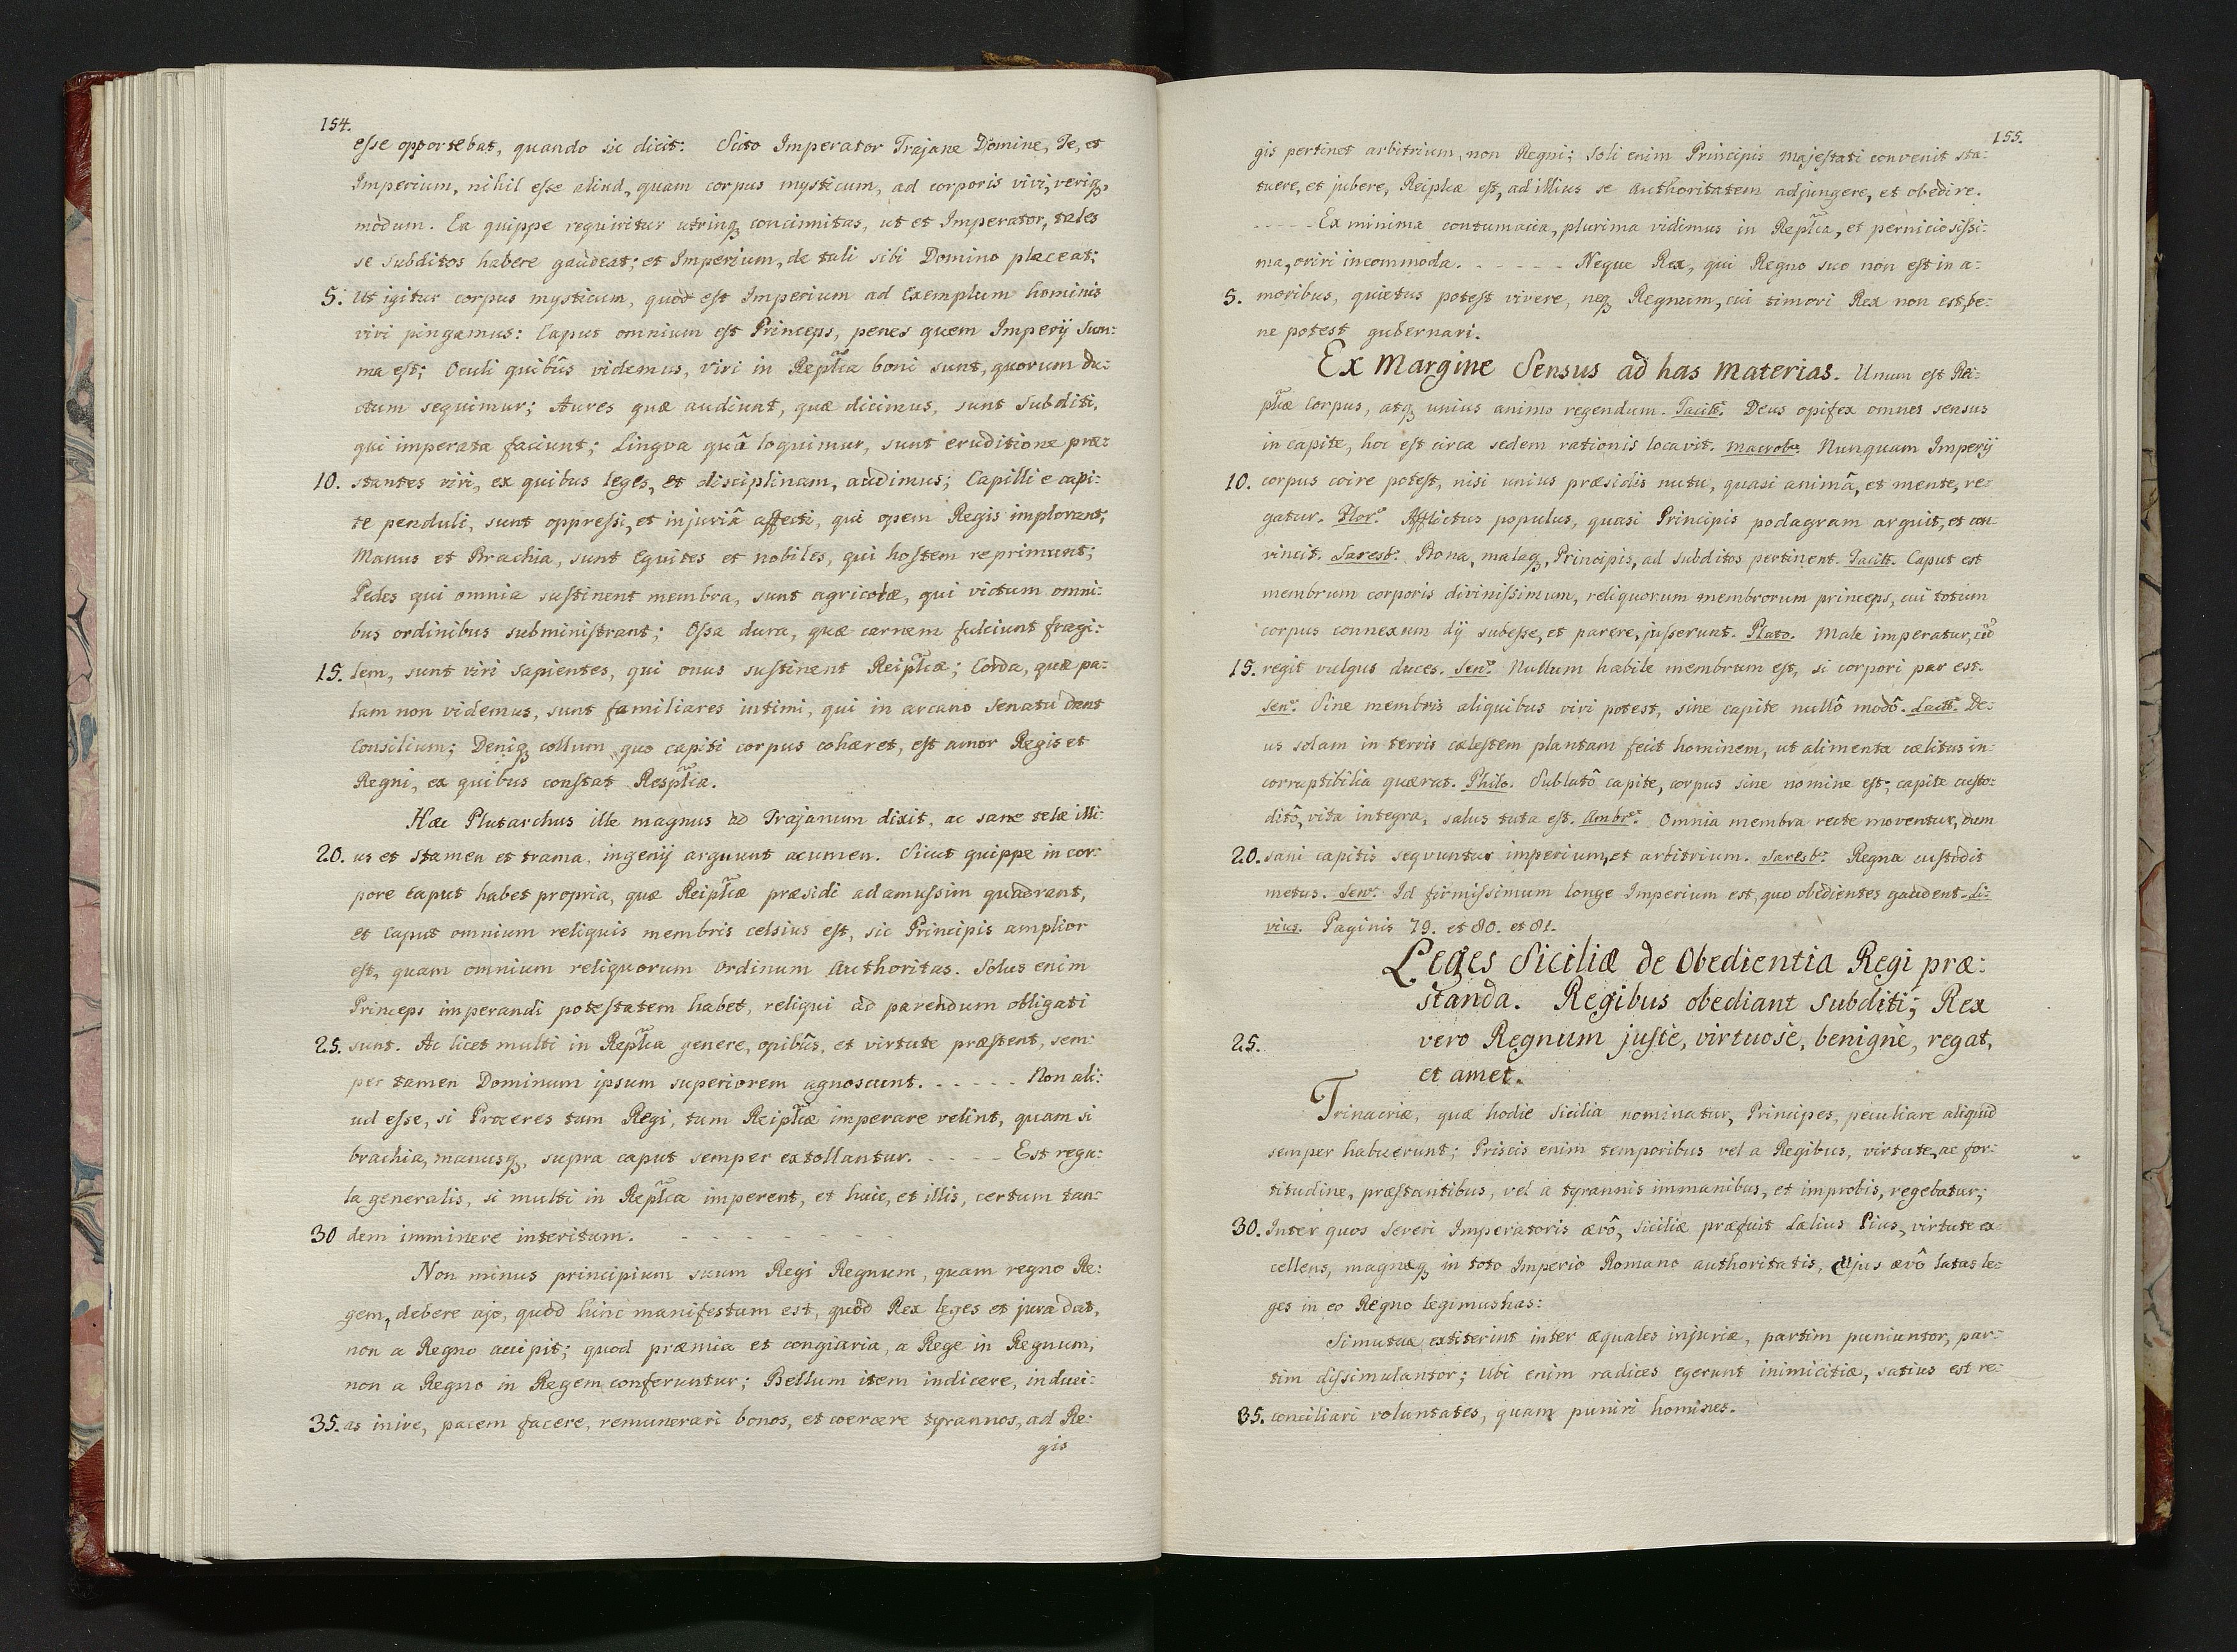 154.
esse opportebat, quando sic dicit: Scito Imperator Trajane Domine, Te, et
Imperium, nihil esse aliud, quam corpus mysticum, ad corporis vivi, veriq,
modum. Ea quippe requiritur utrinq concinnitas, ut et Imperator, tales
se subditos habere gaudeat; et Imperium, de tali sibi Domino placeat;
5. Ut igitur corpus mysticum, quod est Imperium ad Exemplum hominis
vivi pingamus: Caput omnium est Princeps, penes quem Imperÿ sum:
ma est; Oculi quibus videmus, viri in Replĩca boni sunt, quorum du:
ctum sequimur; Aures quæ audiunt, quæ dicimus, sunt Subditi,
qui imperata faciunt; Lingva quâ loquimur, sunt eruditione præ:
10. stantes viri, ex quibus leges, et disciplinam, audimus; Capilli e capi:
te penduli, sunt oppressi, et injuriâ affecti, qui opem Regis implorant;
Manus et Brachia, sunt Equites et nobiles, qui hostem reprimunt;
Pedes qui omnia sustinent membra, sunt agricolæ, qui victum omni:
bus ordinibus subministrant; Ossa dura, quæ carnem fulciunt fragi:
15. lem, sunt viri sapientes, qui onus sustinent Reiplĩcæ; Corda, quæ pa:
lam non videmus, sunt familiares intimi, qui in arcano Senatu dant
Consilium; Deniq collum quo capiti corpus cohæret, est amor Regis et
Regni, ex quibus constat Resplĩca.
Hæc Plutarchus ille magnus ad Trajanum dixit, ac sane telæ illi:
20. us et stamen et trama, ingenÿ arguunt acumen. Sicut quippe in cor:
pore Caput habet propria, quæ Reiplĩcæ præsidi adamussim quadrant,
et Caput omnium reliquis membris celsius est, sic Principis amplior
est, quam omnium reliquorum Ordinum Authoritas. Solus enim
Princeps imperandi potestatem habet, reliqui ad parendum obligati
25. sunt. Ac licet multi in Replĩca genere, opibûs, et virtute præstent, sem:
per tamen Dominum ipsum superiorem agnoscunt. - - - - - Non ali:
ud esse, si Proceres tum Regi, tum Reiplĩcæ imperare velint, quam si
brachia, manusq, supra caput semper extollantur. - - - - Est regu:
la generalis, si multi in Replĩca imperent, et huic, et illis, certum tan:
30 dem imminere interitum. - - - - - - -
Non minus principium suum Regi Regnum, quam regno Re:
gem, debere ajo, quod hinc manifestum est, quod Rex leges et jura dat,
non a Regno accipit; quod præmia et congiaria, a Rege in Regnum,
non a Regno in Regem conferuntur; Bellum item indicere, induci:
35. as inire, pacem facere, remunerari bonos, et coercere tyrannos, ad Re:
gis
155.
gis pertinet arbitrium, non Regni; Soli enim Principis Majestati convenit sta:
tuere, et jubere, Reiplcæ est, ad illius se Authoritatem adjungere, et obedire.
- - - - Ex minima contumacia, plurima vidimus in Replĩca, et perniciosissi:
ma, oriri incommoda. - - - - - Neque Rex, qui Regno suo non est in a:
5. moribus, quietus potest vivere, neq Regnum, cui timori Rex non est, be:
ne potest gubernari.
Ex Margine Sensus ad has Materias. Unum est Rei:
plĩcæ Corpus, atq unius animo regendum. Tacitt. Deus opifex omnes sensus
in capite, hoc est circa sedem rationis locavit. Macrobs. Nunquam Imperÿ
10. corpus coire potest, nisi unius præsidis nutu, quasi animâ, et mente, re:
gatur. Flors. Afflictus populus, quasi Principis podagram arguit, et con:
vincit. Saresbs. Bona, malaq, Principis, ad subditos pertinent. Tacitt. Caput est
membrum corporis divinissimum, reliquorum membrorum princeps, cui totum
corpus connexum dÿ subesse, et parere, jusserunt. Plato. Male imperatur, cũ
15. regit vulgus duces. Sens. Nullum habile membrum est, si corpori par est.
Sens. Sine membris aliquibus vivi potest, sine capite nullô modô. Lactt. De:
us solam in terris cælestem plantam fecit hominem, ut alimenta cælitus in:
corruptibilia quærat. Philo. Sublatô capite, corpus sine nomine est; capite custo:
ditô, vita integra, salus tuta est. Ambrs. Omnia membra recte moventur, dum
20. sani capitis seqvuntur imperium, et arbitrium. Saresbs. Regna custodit
metus. Sens. Id firmissimum longe Imperium est, quo obedientes gaudent. Li:
vius. Paginis 79. et 80. et 81.
Leges Siciliæ de Obedientia Regi præ:
standa. Regibus obediant subditi; Rex
25. vero Regnum justè, virtuosè, benignè, regat,
et amet.
Trinacriæ, quæ hodie Sicilia nominatur, Principes, peculiare aliquid
semper habuerunt; Priscis enim temporibus vel a Regibus, virtute, ac for:
titudine, præstantibus, vel a tyrannis immanibus, et improbis, regebatur;
30. Inter quos Severi Imperatoris ævô, Siciliæ præfuit Lælius Pius, virtute ex:
cellens, magnæq in toto Imperio Romano authoritatis, Cujus ævô latas le:
ges in eo Regno legimus has:
Si mutuæ extiterint inter æquales injuriæ, partim puniuntor, par:
tim dissimulantor; Ubi enim radices egerunt inimicitiæ, satius est re:
35. conciliari voluntates, quam puniri homines.